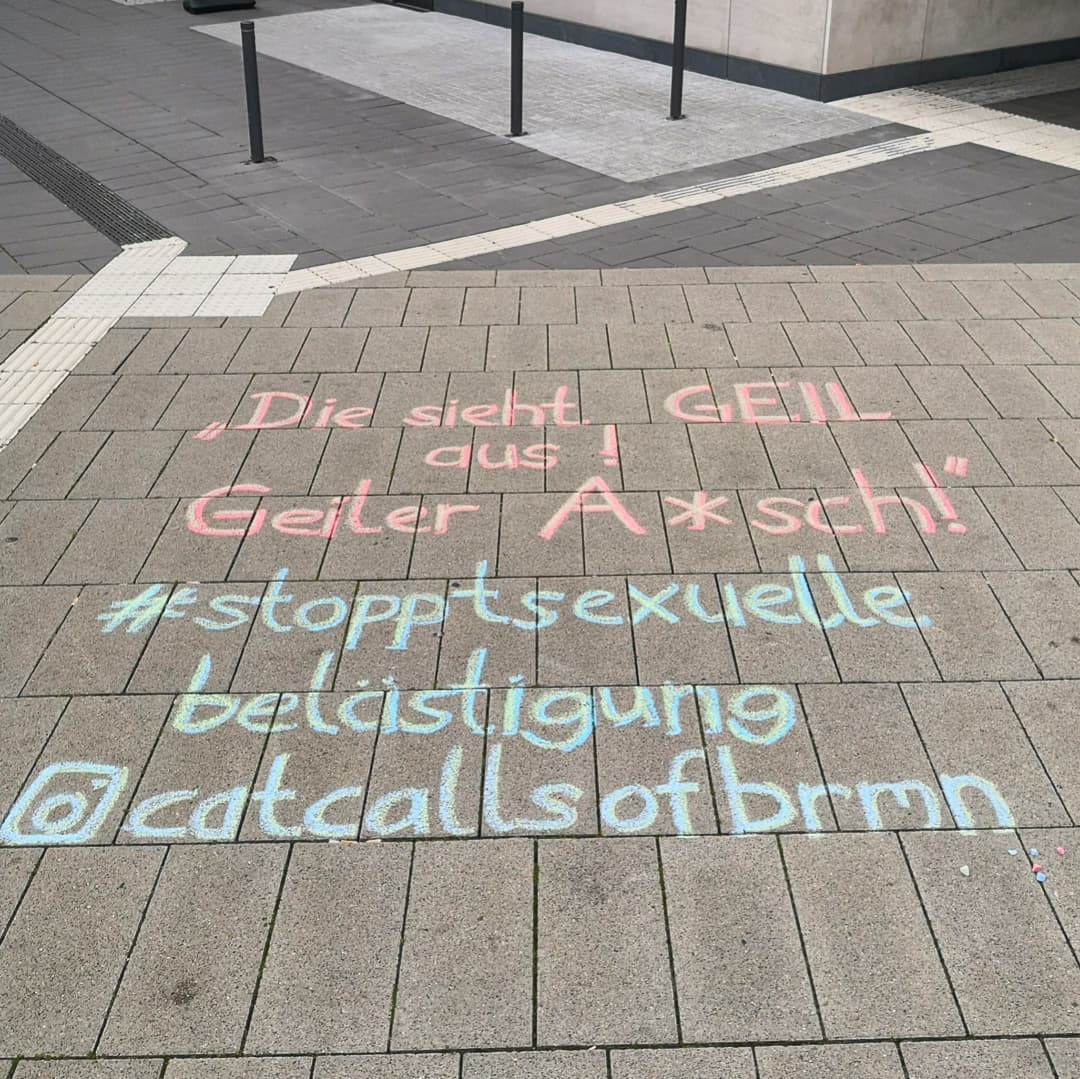 „Die sieht GEIL
aus!
Geiler A*sch!“
#stopptsexuelle
belästigung
@catcallsofbrmn